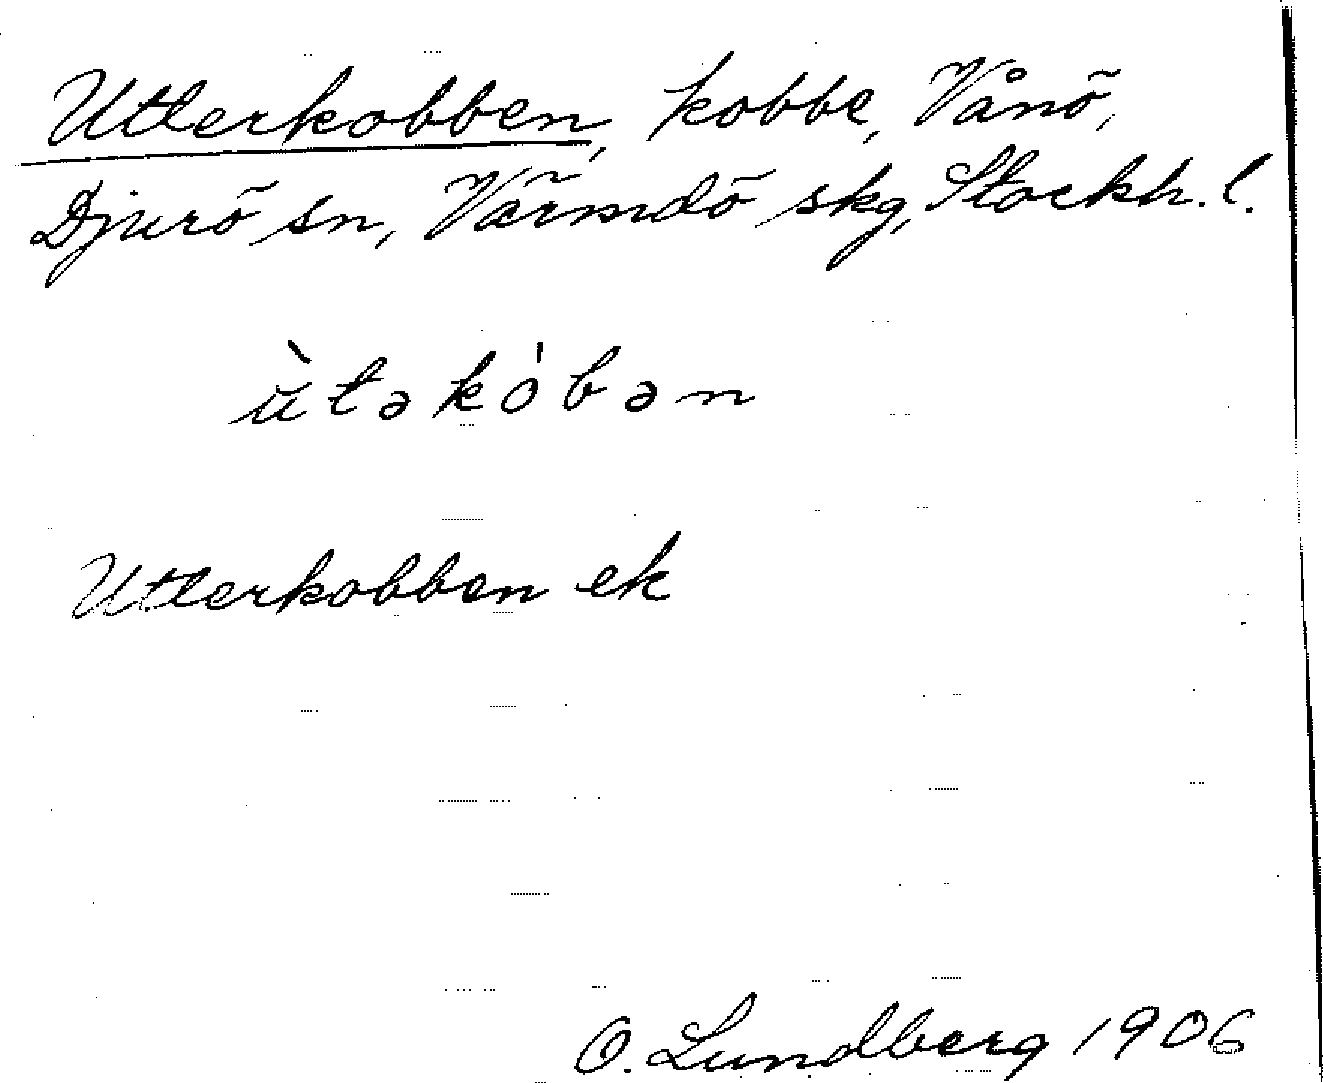 Utterkobben, kobbe, Vånö,
Djurö sn, Värmdö skg, Stockh. l.
ùtəkȯbən
Utterkobben ek
O. Lundberg 1906